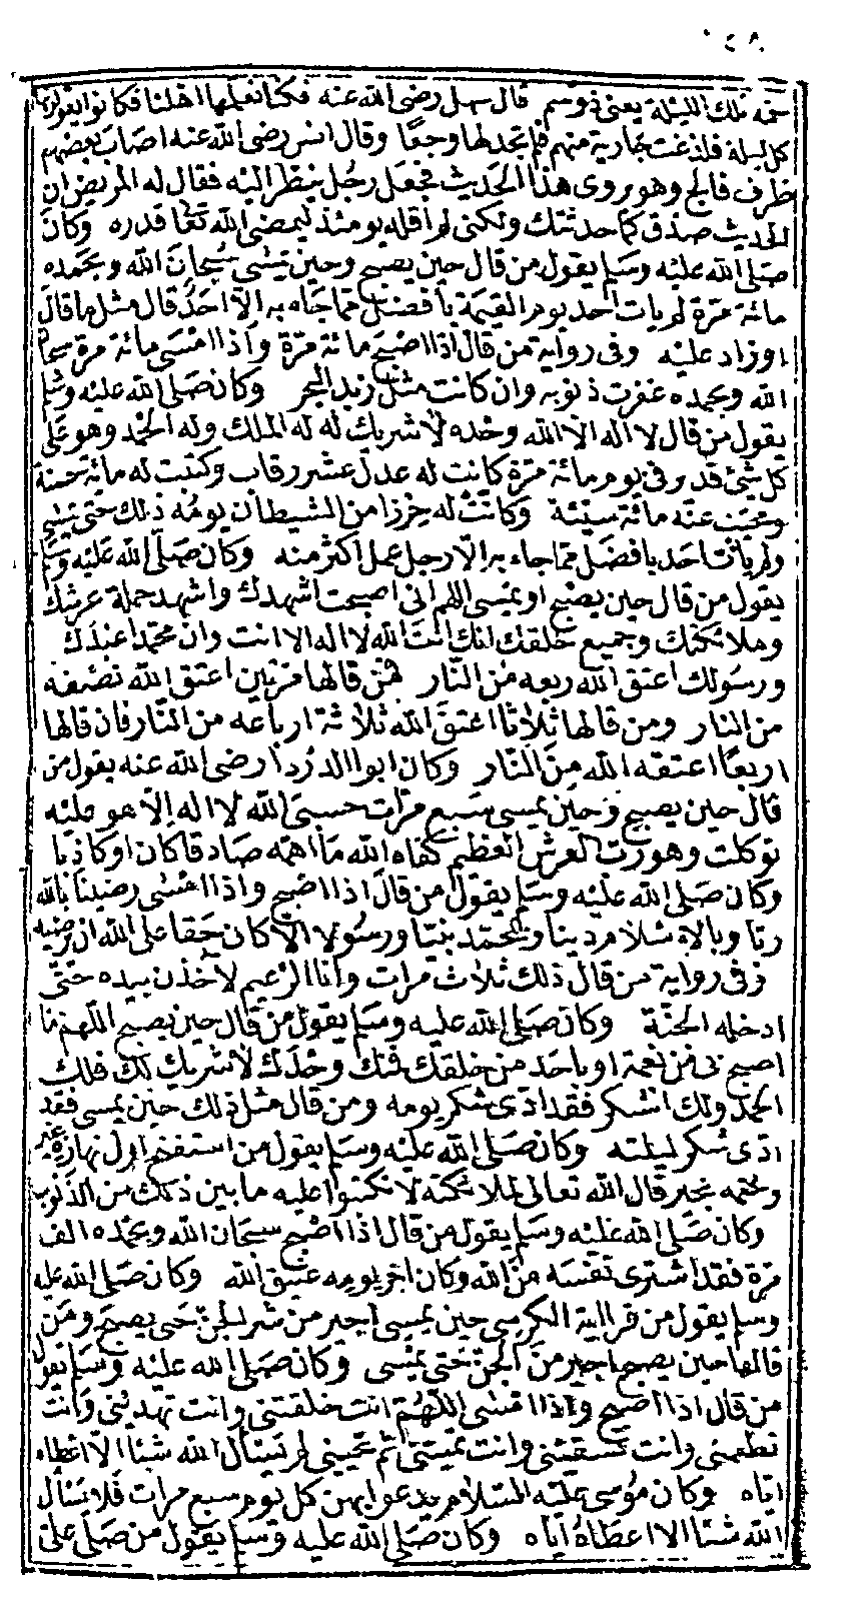 ١٤٨
حمة تلك الليلة يعني ذو سم قال سهل رضى الله عنه فكنا نعلمها اهلنا فكانوا يقولونها
كل ليلة فلدغت جارية منهم فلم تجد لها وجعا وقال انس رضى الله عنه اصاب بعضهم
طرف فالج وهو يروى هذا الحديث فجعل رجل ينظر اليه فقال له المريض ان
الحديث صدق كما حدثتك ولكنى لم اقله يومئذ ليمضى الله تعا قدره وكان
صلى الله عليه وسلم يقول من قال حين يصبح وحين يمسى سبحان الله وبحمده
مائة مرة لم يات احد يوم القيمة بافضل مما جاء به الا احد قال مثل ما قال
او زاد عليه وفى رواية من قال اذا اصبح مائة مرة واذا امسى مائة مرة سبحان
الله وبحمده غفرت ذنوبه وان كانت مثل زبد البحر وكان صلى الله عليه وسلم
يقول من قال لا اله الا الله وحده لا شريك له له الملك وله الحمد وهو على
كل شئ قدير فى يوم مائة مرة كانت له عدل عشر رقاب وكتبت له مائة حسنة
ومحيت عنه مائة سيئة وكانت له حرزا من الشيطان يومه ذلك حتى يمسى
ولم يات احد بافضل مما جاء به الا رجل عمل اكثر منه وكان صلى الله عليه وسلم
يقول من قال حين يصبح او يمسى اللهم انى اصبحت اشهدك واشهد حملة عرشك
وملائكتك وجميع خلقك انك انت الله لا اله الا انت وان محمدا عبدك
ورسولك اعتق الله ربعه من النار فمن قالها مرتين اعتق الله نصفه
من النار ومن قالها ثلاثا اعتق الله ثلاثة ارباعه من النار فان قالها
اربعا اعتقه الله من النار وكان ابو الدردا رضى الله عنه يقول من
قال حين يصبح وحين يمسى سبع مرات حسبى الله لا اله الا هو عليه
توكلت وهو رب العرش العظيم كفاه الله ما اهمه صادقا كان او كاذبا
وكان صلى الله عليه وسلم يقول من قال اذا اصبح واذا امسى رضينا بالله
ربا وبالاسلام دينا وبمحمد نبيا ورسولا الا كان حقا على الله ان يرضيه
وفى رواية من قال ذلك ثلاث مرات وانا الزعيم لآخذن بيده حتى
ادخله الجنة وكان صلى الله عليه وسلم يقول من قال حين يصبح اللهم ما
اصبح بى من نعمة او باحد من خلقك فمنك وحدك لا شريك لك فلك
الحمد ولك الشكر فقد ادى شكر يومه ومن قال مثل ذلك حين يمسى فقد
ادى شكر ليلته وكان صلى الله عليه وسلم يقول من استفتح اول نهاره بخير
وختمه بخير قال الله تعالى لملائكته لا تكتبوا عليه ما بين ذلك من الذنوب
وكان صلى الله عليه وسلم يقول من قال اذا اصبح سبحان الله وبحمده الف
مرة فقد اشترى نفسه من الله وكان آخر يومه عتيق الله وكان صلى الله عليه
وسلم يقول من قرا اية الكرسى حين يمسى اجير من شر الجن حتى يصبح ومن
قالها حين يصبح اجير من الجن حتى يمسى وكان صلى الله عليه وسلم يقول
من قال اذا اصبح واذا امسى اللهم انت خلقتنى وانت تهدينى وانت
تطعمنى وانت تسقينى وانت تميتنى ثم تحيينى لم يسئال الله شيئا الا اعطاه
اياه وكان موسى عليه السلام يدعو بهن كل يوم سبع مرات فلا يسئال
الله شيئا الا اعطاه اياه وكان صلى الله عليه وسلم يقول من صلى على